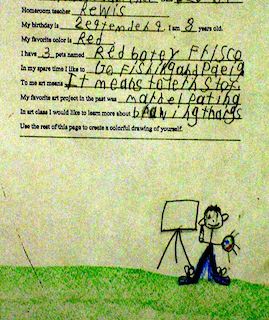 Homeroom teacher Lewis
My birthday is I am 8 years old.
My favorite color is Red
I have 3 pets named Red boter Frisco
In my spare time I like to Go Fishing and
To me art means It means to
My favorite art project in the past was
In art class I would like to learn more about
Use the rest of this page to create a colorful drawing of yourself.